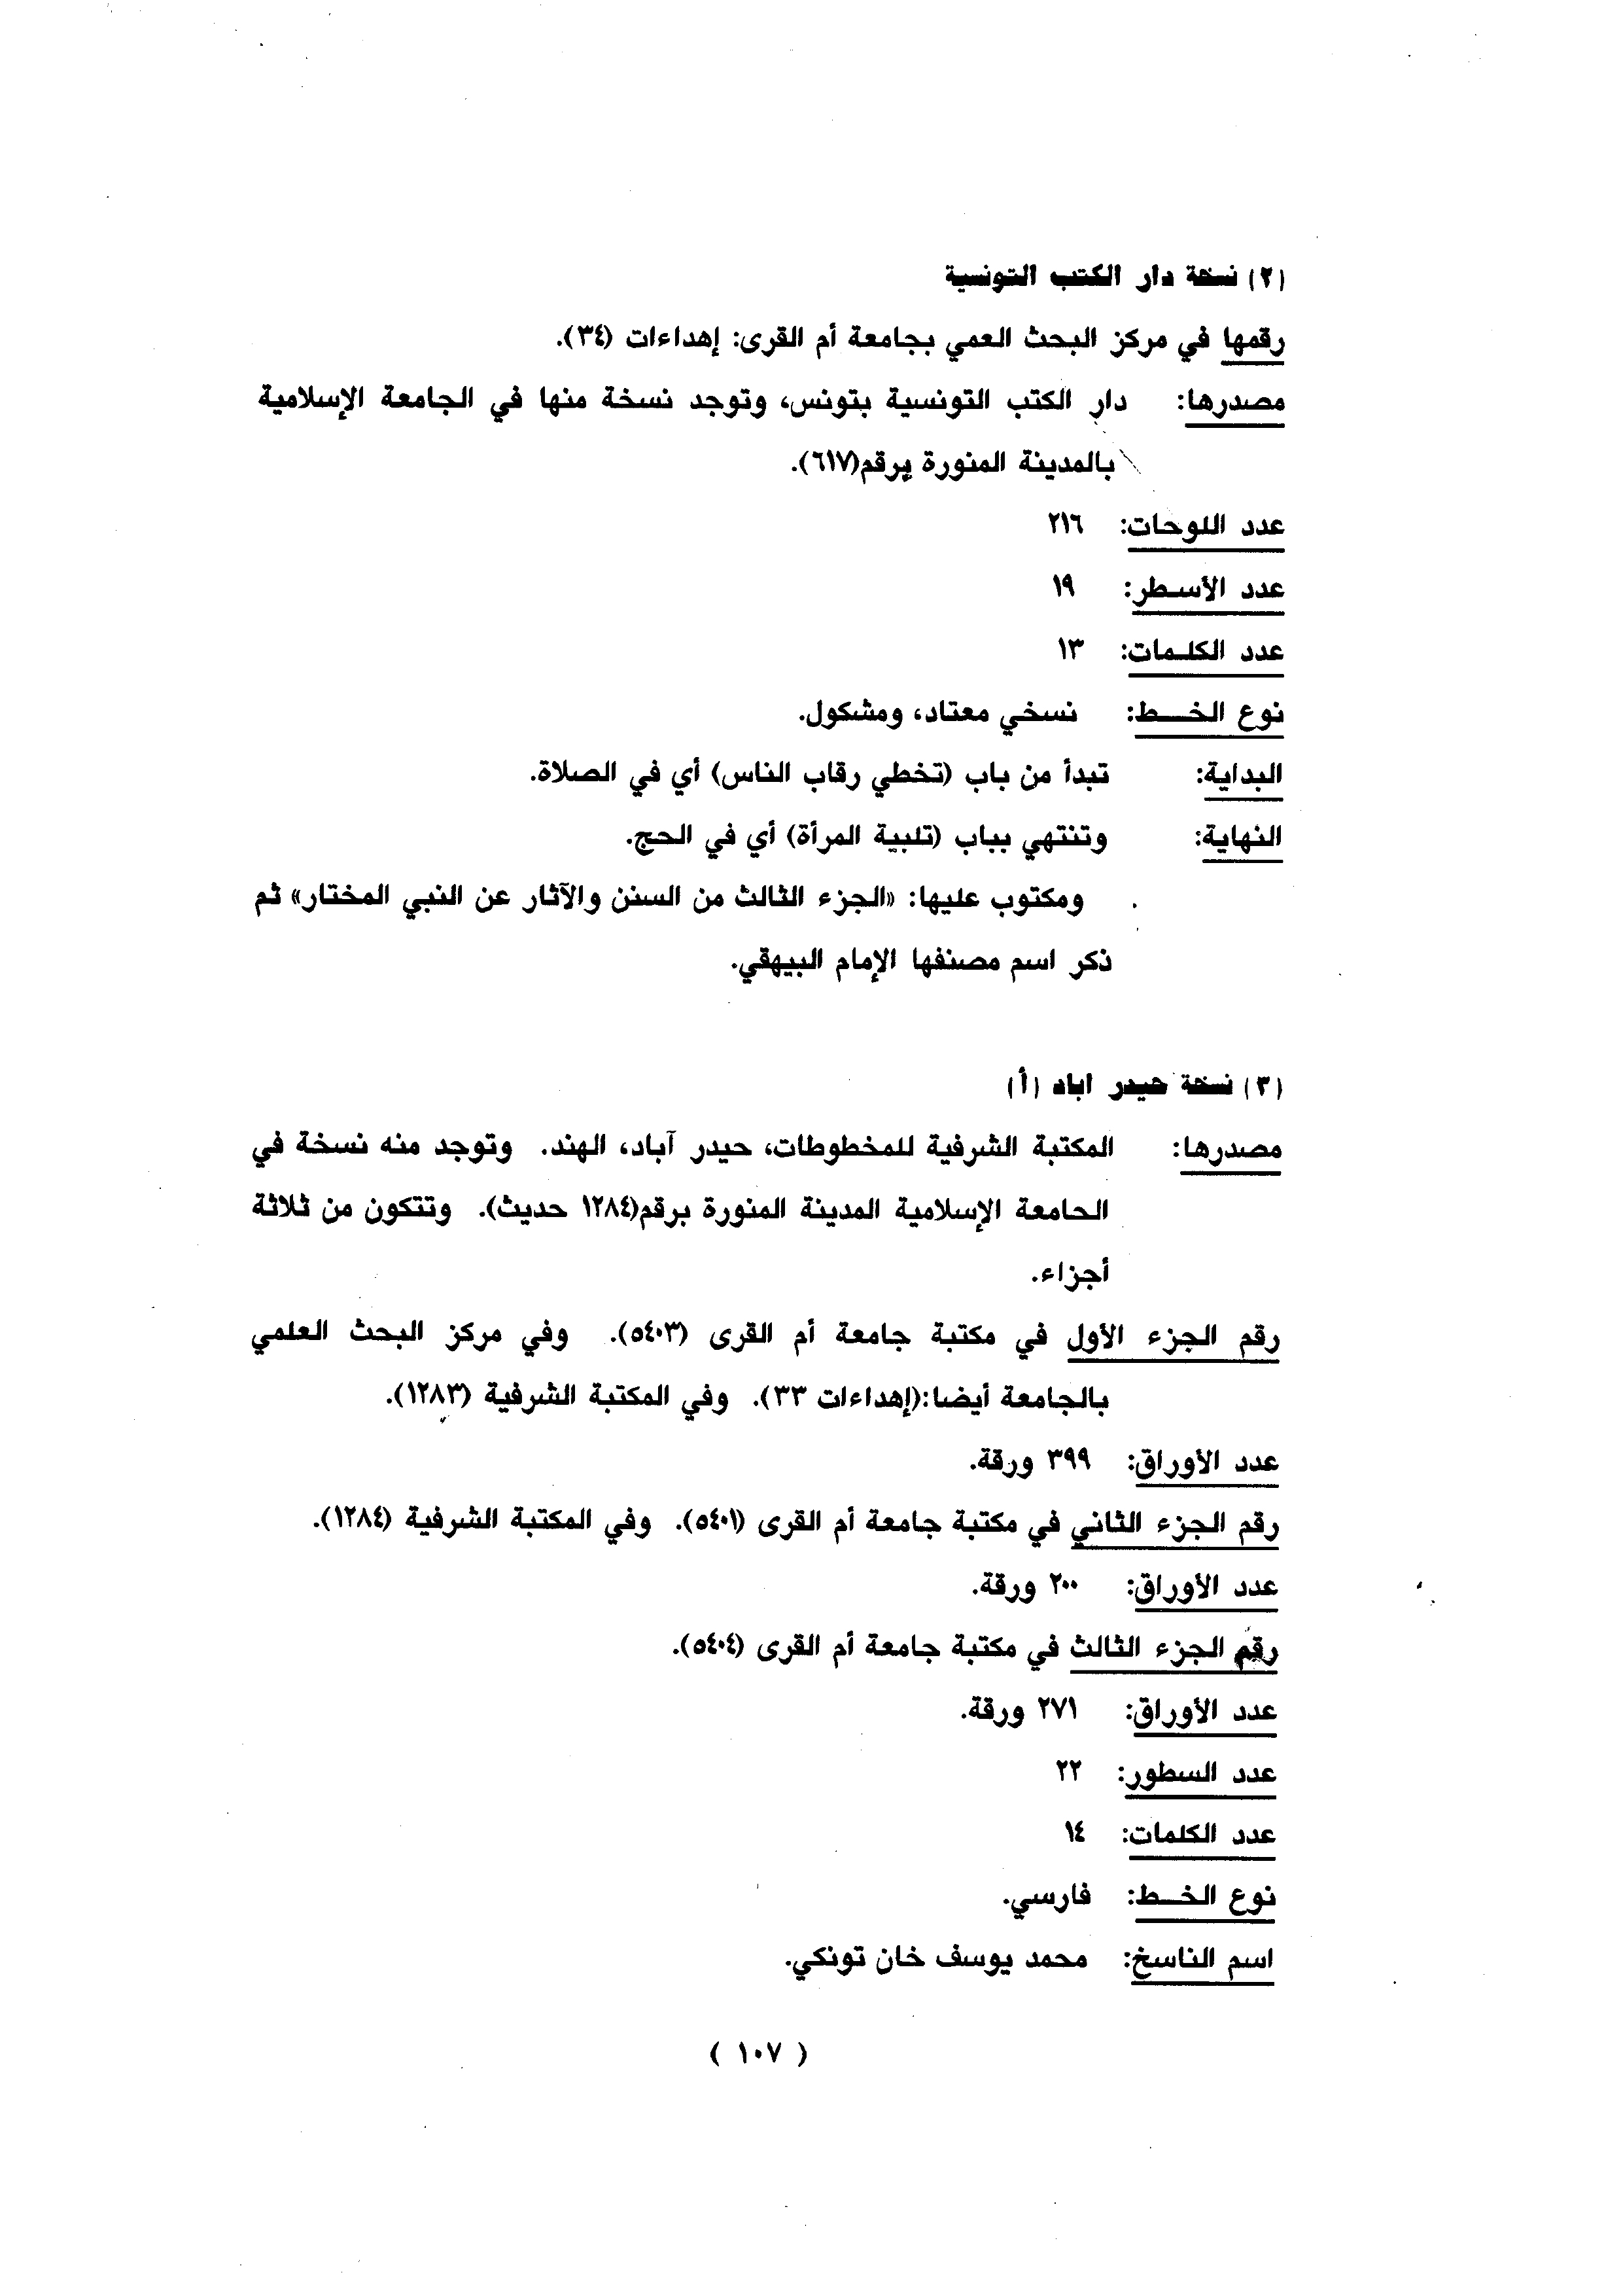 (٢) نسخة دار الكتب التونسية
رقمها في مركز البحث العمي بجامعة أم القرى: إهداءات (٣٤).
مصدرها: دار الكتب التونسية بتونس، وتوجد نسخة منها في الجامعة الإسلامية
بالمدينة المنورة برقم(٦١٧).
عدد اللوحات: ٢١٦
عدد الأسطر: ١٩
عدد الكلمات: ١٣
نوع الخط: نسخي معتاد، ومشكول.
البداية: تبدأ من باب (تخطي رقاب الناس) أي في الصلاة.
النهاية: وتنتهي بباب (تلبية المرأة) أي في الحج.
ومكتوب عليها: «الجزء الثالث من السنن والآثار عن النبي المختار» ثم
ذكر اسم مصنفها الإمام البيهقي.
(٣) نسخة حيدر اباد (أ)
مصدرها: المكتبة الشرفية للمخطوطات، حيدر آباد، الهند. وتوجد منه نسخة في
الجامعة الإسلامية المدينة المنورة برقم(١٢٨٤ حديث). وتتكون من ثلاثة
أجزاء.
رقم الجزء الأول في مكتبة جامعة أم القرى (٥٤٠٣). وفي مركز البحث العلمي
بالجامعة أيضا:(إهداءات ٣٣). وفي المكتبة الشرفية (١٢٨٣).
عدد الأوراق: ٣٩٩ ورقة.
رقم الجزء الثاني في مكتبة جامعة أم القرى (٥٤٠١). وفي المكتبة الشرفية (١٢٨٤).
عدد الأوراق: ٢٠٠ ورقة.
رقم الجزء الثالث في مكتبة جامعة أم القرى (٥٤٠٤).
عدد الأوراق: ٢٧١ ورقة.
عدد السطور: ٢٢
عدد الكلمات: ١٤
نوع الخط: فارسي.
اسم الناسخ: محمد يوسف خان تونكي.
( ١٠٧ )